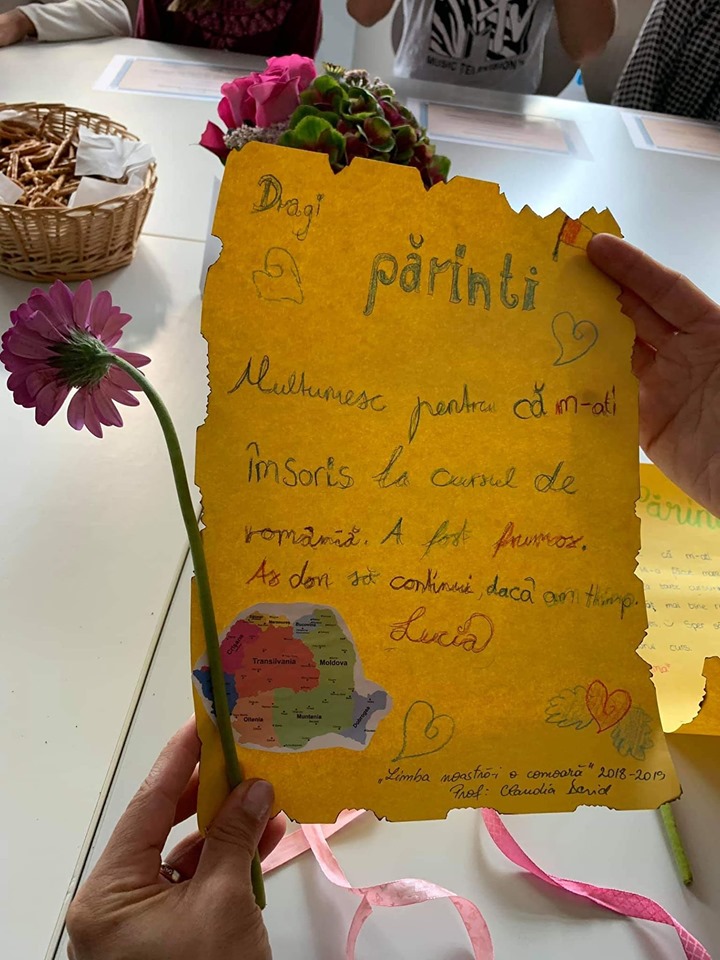 MUSIC TELEVISION
Dragi
părinti
Multumesc pentru că m-ati
însoris la cursul de
română. A fost frumos.
As don să continui, dacă am thimp.
Lucia
Crișana
Maramureș
Bucovina
Transilvania
Moldova
Oltenia
Muntenia
Dobrogea
„Limba noastră-i o comoară" 2018-2019
Prof: Claudia David
Părin
că m-ati